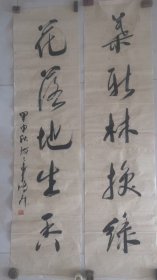 叶新林换绿
花落地生香
甲申秋